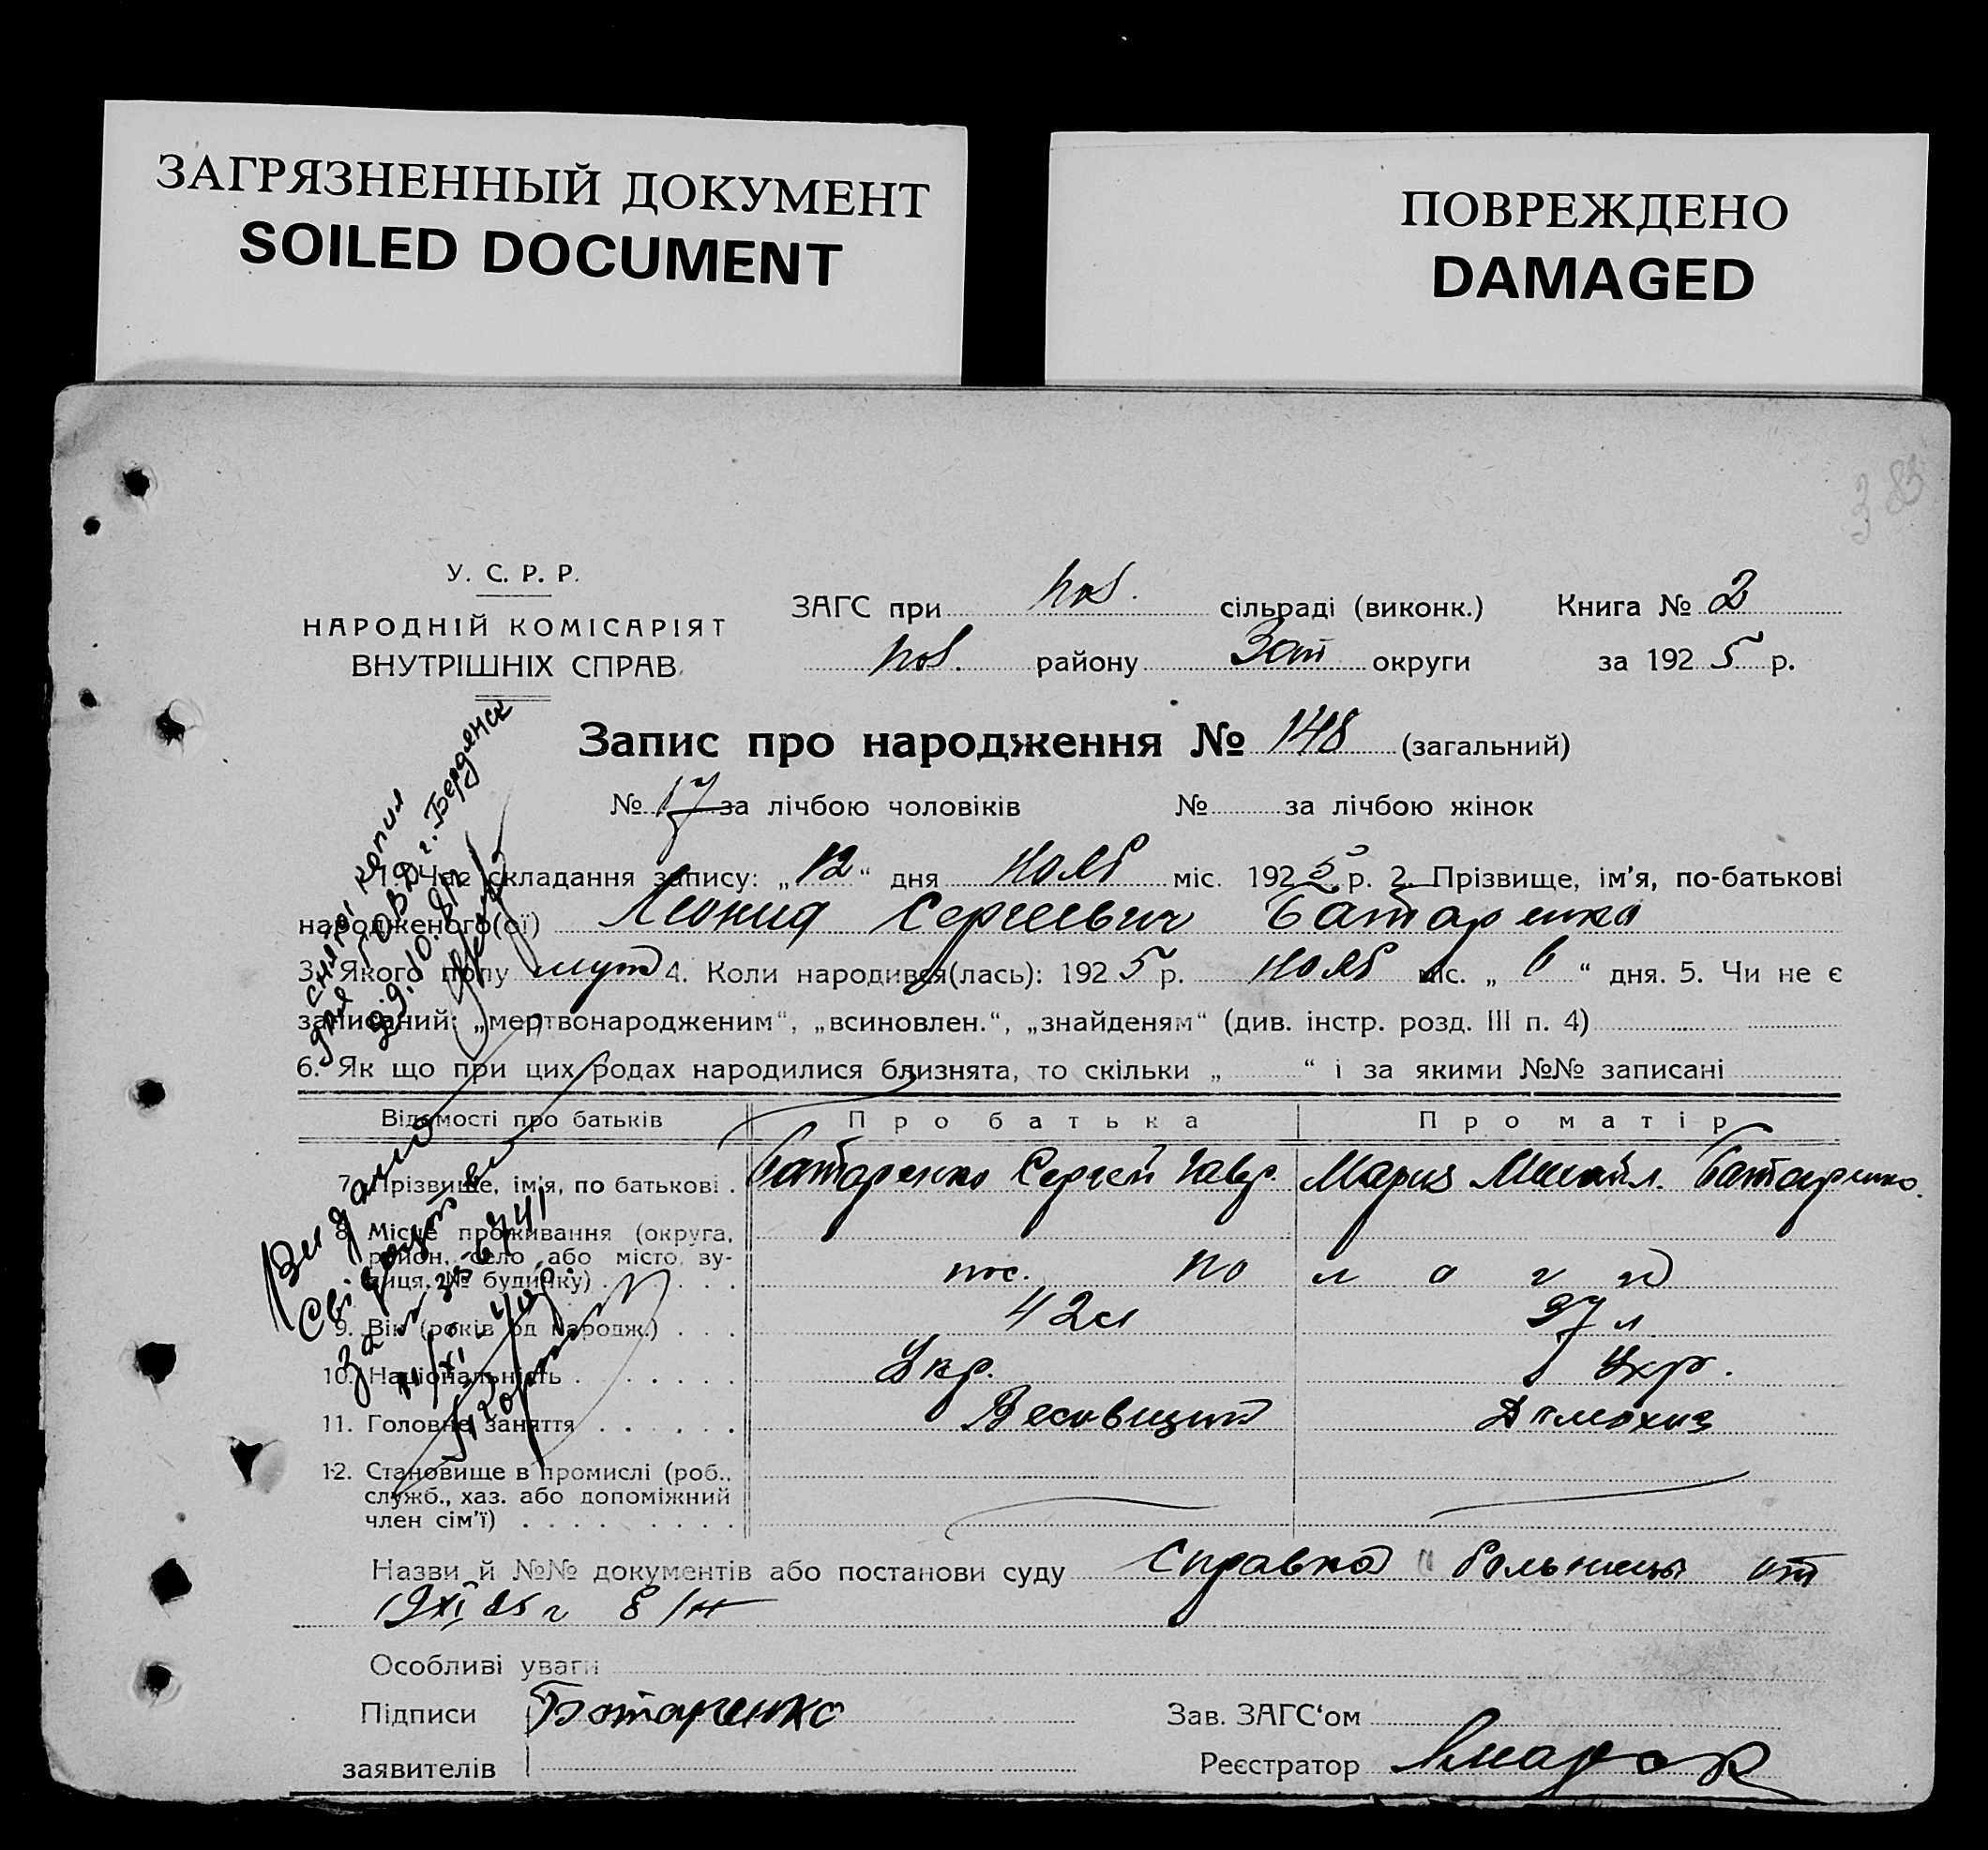 ЗАГРЯЗНЕННЫЙ ДОКУМЕНТ
SOILED DOCUMENT
ПОВРЕЖДЕНО
DAMAGED
383
У. С. Р. Р.
НАРОДНІЙ КОМІСАРІЯТ
ВНУТРІШНІХ СПРАВ
ЗАГС при пол. сільраді (виконк.) Книга № 2
пол. району Зап округи за 1925 р.
Запис про народження № 148 (загальний)
№ 17 за лічбою чоловіків № за лічбою жінок
1. Час складання запису: „12“ дня нояб міс. 1925 р. 2. Прізвище, ім'я, по-батькові
народженого(ої) Леонид Сергеевич Батаренко
3. Якого полу муж 4. Коли народився(лась): 1925 р. нояб міс. „6“ дня. 5. Чи не є
записаний: „мертвонародженим“, „всиновлен.“, „знайденям“ (див. інстр. розд. III п. 4)
6. Як що при цих родах народилися близнята, то скільки „ “ і за якими №№ записані
Відомості про батьків Про батька Про матір
7. Прізвище, ім'я, по батькові . Батаренко Сергей Мария Михайл. Батаренко.
8. Місце проживання (округа,
район, село або місто, ву-
лиця, № будинку) . . . . пос. Пологи
9. Вік (років од народж.) . . . 42 л 37 л
10. Національність . . . . . . Укр. Укр.
11. Головне заняття . . . . . . Весовщик Домохоз
12. Становище в промислі (роб.,
служб., хаз. або допоміжний
член сім'ї) . . . . . . . . .
Назви й №№ документів або постанови суду Справка больницы от
19 XI 25 г б/н
Особливі уваги
Підписи Батаренко Зав. ЗАГС‘ом
заявителів Реєстратор
сняті копия
для ГОВД г. Бердянск
29.10.81г
Видано
свідоцтво
за №
11/XI